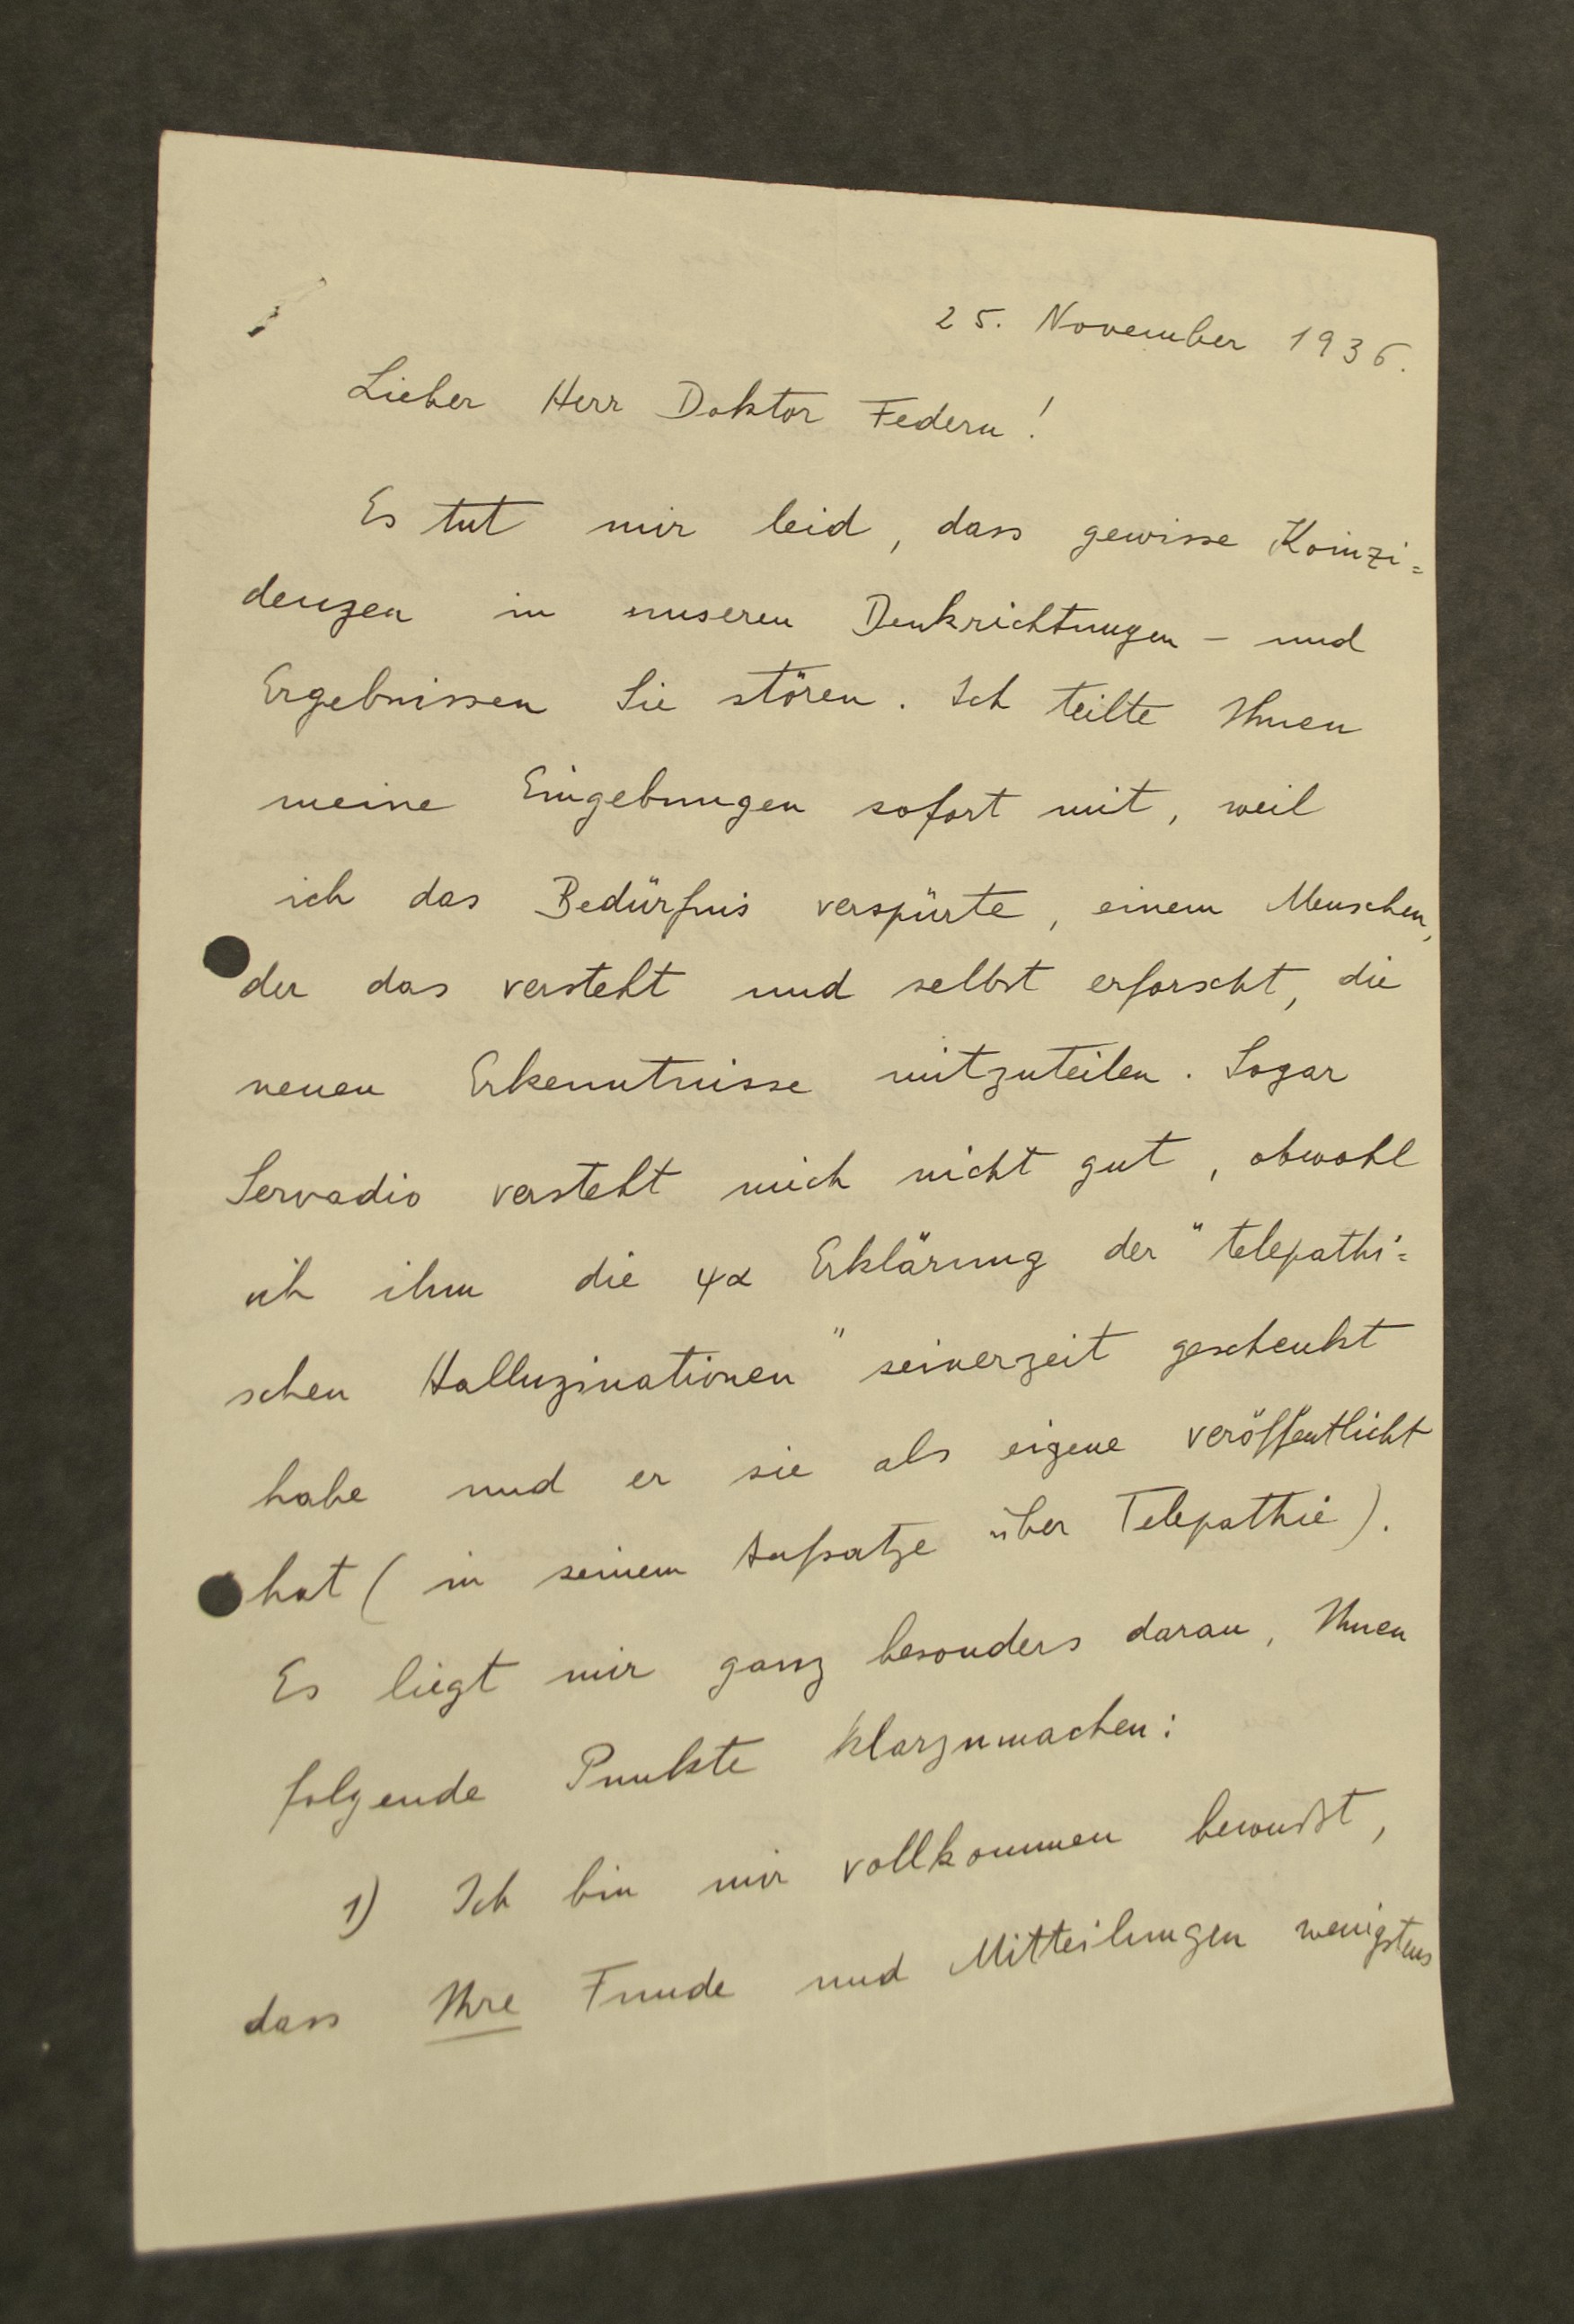 25. November 1936.
Lieber Herr Doktor Federn!
Es tut mir leid, dass gewisse Koinzi=
denzen in unseren Denkrichtungen - und
Ergebnissen Sie stören. Ich teilte Ihnen
meine Eingebungen sofort mit, weil
ich das Bedürfnis verspürte, einem Menschen,
der das versteht und selbst erforscht, die
neuen Erkenntnisse mitzuteilen. Sogar
Servadio versteht mich nicht gut, obwohl
ich ihm die ψα Erklärung der "telepathi=
schen Halluzinationen" seinerzeit geschenkt
habe und er sie als eigene veröffentlicht
hat (in seinem Aufsatze über Telepathie).
Es liegt mir ganz besonders daran, Ihnen
folgende Punkte klarzumachen:
1) Ich bin mir vollkommen bewußt,
dass Ihre Funde und Mitteilungen wenigstens